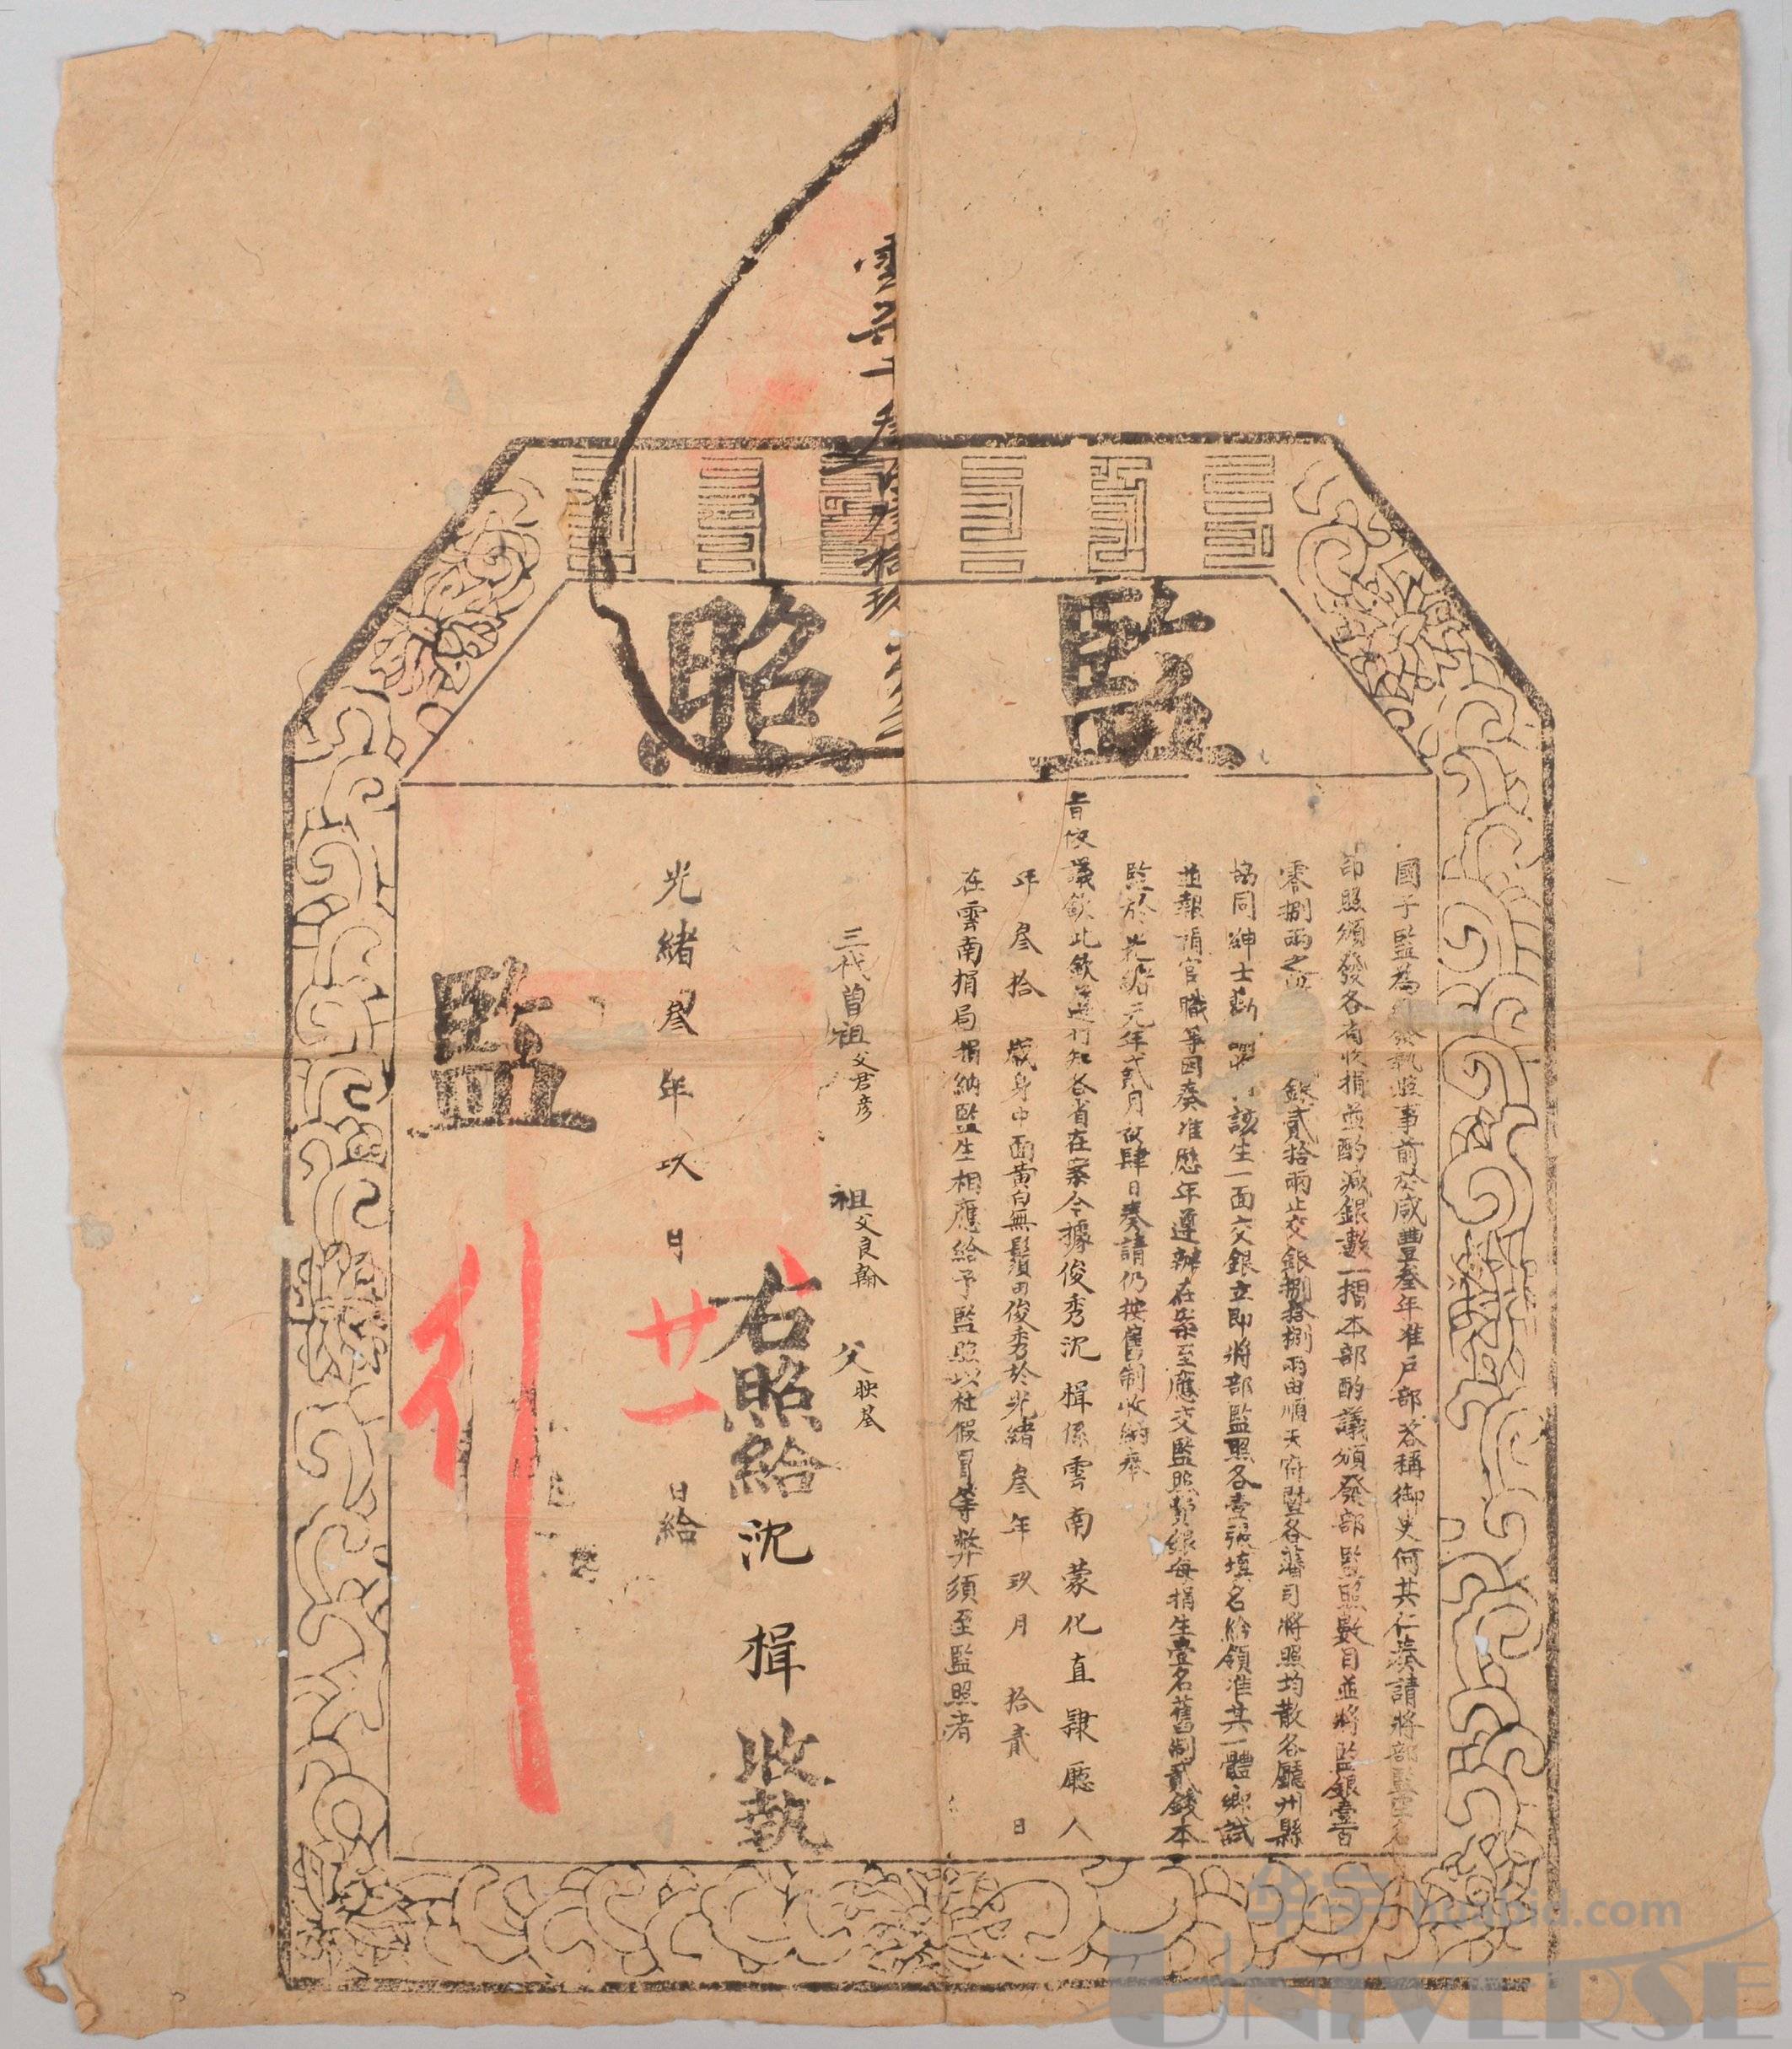 監照
國子監為發執照事前於咸豐叁年准戶部咨稱御史何其仁奏請將部監空名
印照頒發各省收捐並酌減銀數一摺本部酌議頒發部監照數目並將監銀壹百
零捌兩之 銀貳拾兩止交銀捌拾捌兩由順天府暨各藩司將照均散各廳州縣
協同紳士勸 該生一面交銀立即將部監照各壹張填名給領准其一體鄉試
並報捐官職等因奏准歷年遵辦在案至應交監照費銀每捐生壹名舊制貳錢本
監於光緒元年貳月初肆日奏請仍按舊制收納奉
旨依議欽此欽遵行知各省在案今據俊秀沈 楫係雲南蒙化直隸廳人
年叁拾 歲身中面黃白無鬚由俊秀於光緒叁年玖月拾貳日
在雲南捐局捐納監生相應給予監照以杜假冒等弊須至監照者
三代曾祖父君彥 祖父良翰 父映奎
右照給沈 楫 收執
光緒叁年玖月廿一日給
監
行
华宇 huabid.com
UNIVERSE